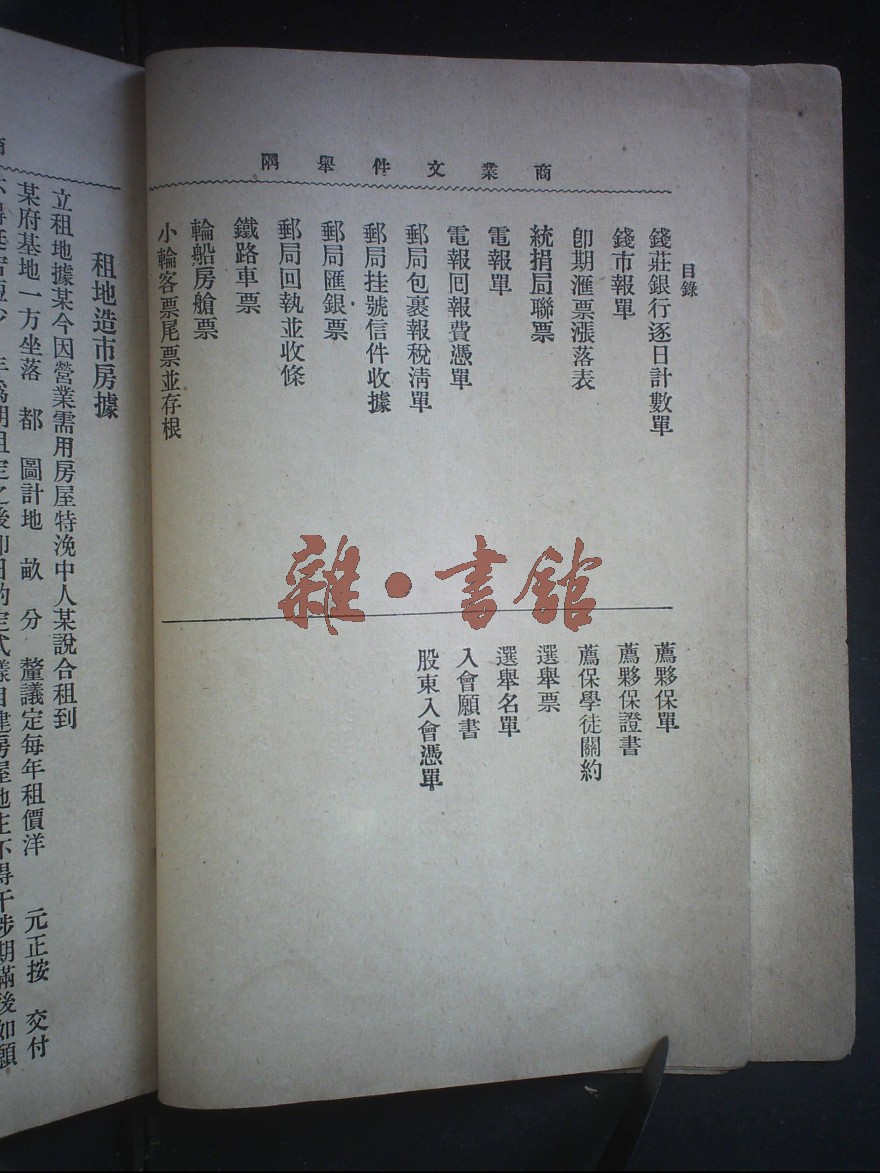 商業文件舉隅
目錄
錢莊銀行逐日計數單
錢市報單
卽期滙票漲落表
統捐局聯票
電報單
電報回報費憑單
郵局包裹報稅淸單
郵局挂號信件收據
郵局匯銀票
郵局回執並收條
鐵路車票
輪船房艙票
小輪客票尾票並存根
薦夥保單
薦夥保證書
薦保學徒關約
選舉票
選舉名單
入會願書
股東入會憑單
雜·書館
租地造市房據
立租地據某今因營業需用房屋特浼中人某說合租到
某府基地一方坐落 都 圖計地 畝 分 釐議定每年租價洋 元正按 交付
年爲期租定之後卽由約定式樣自建房屋地主不得干涉期滿後如願